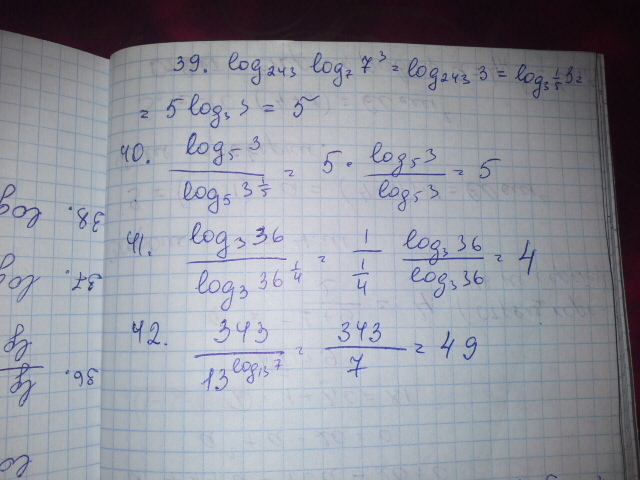 39. log₂₄₃ log₇ 7³ = log₂₄₃ 3 = log₃ 1/5 3 =
= 5 log₃ 3 = 5
40. log₅ 3 / log₅ 3^(1/5) = 5 · log₅ 3 / log₅ 3 = 5
41. log₃ 36 / log₃ 36^(1/4) = 1 / (1/4) log₃ 36 / log₃ 36 = 4
42. 343 / 13^(log₁₃ 7) = 343 / 7 = 49
38. log
37. log
36. lg / lg